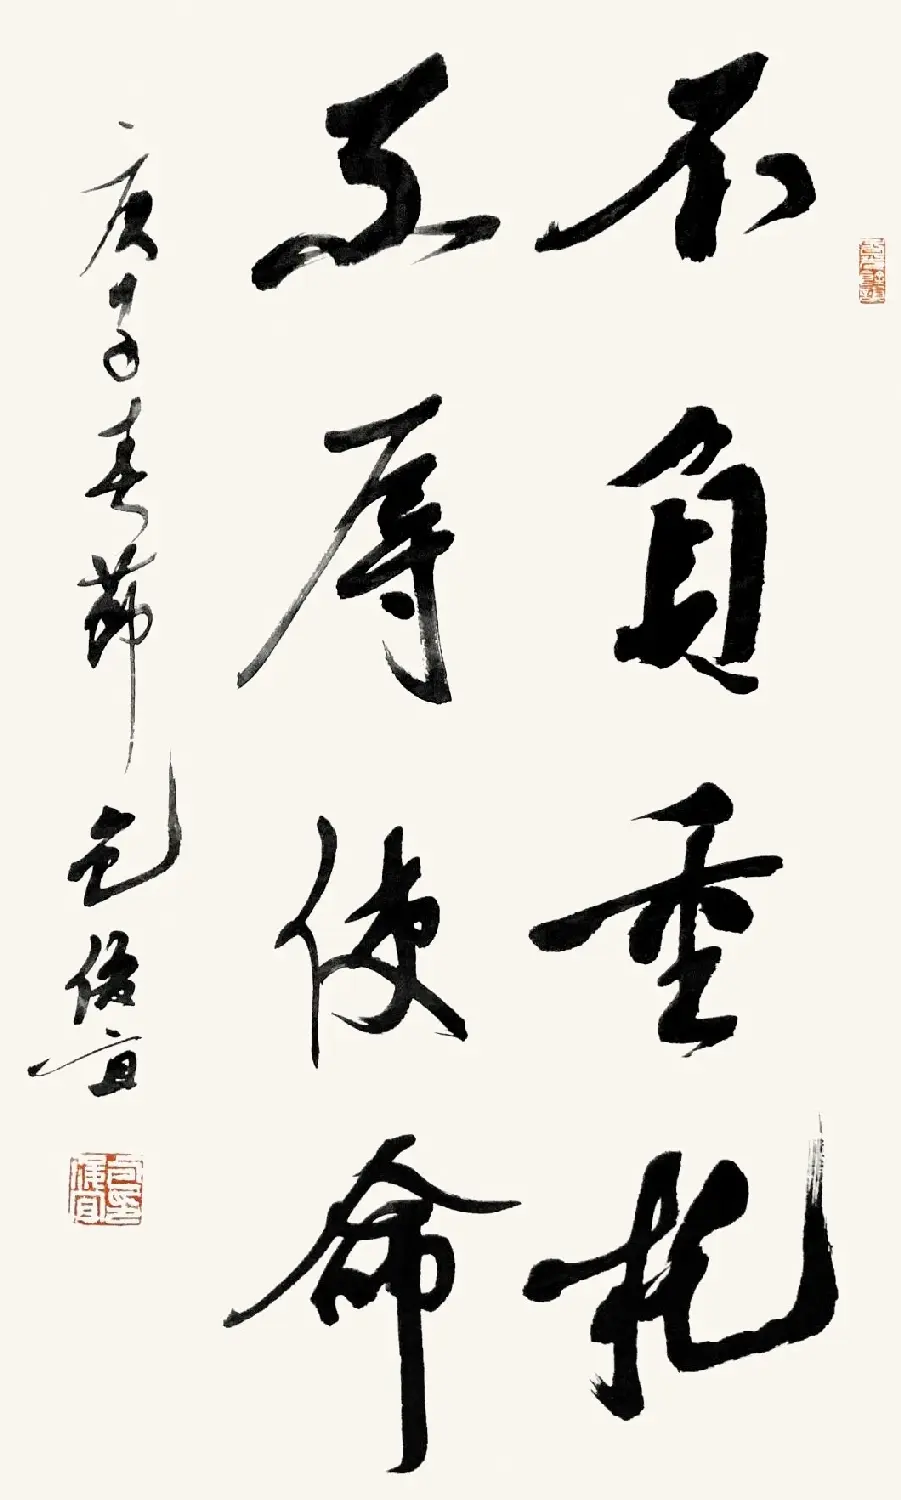 不负重托
不辱使命
庚子春节包俊宜